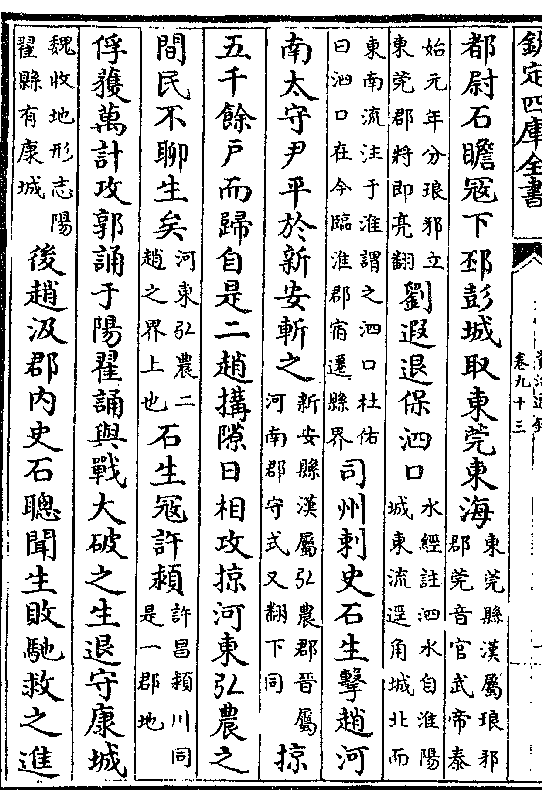 欽定四庫全書
卷九十三
都尉石瞻冦下邳彭城取東莞東海東莞縣漢屬琅邪郡莞音官武帝泰
始元年分琅邪立東莞郡將即亮翻劉遐退保泗口水經註泗水自淮陽城東流逕角城北而
東南流注于淮謂之泗口杜佑曰泗口在今臨淮郡宿遷縣界司州刺史石生擊趙河
南太守尹平於新安斬之新安縣漢屬弘農郡晉屬河南郡守式又翻下同掠
五千餘户而歸自是二趙搆隙日相攻掠河東弘農之
間民不聊生矣河東弘農二趙之界上也石生冦許潁許昌潁川同是一郡地
俘獲萬計攻郭誦于陽翟誦與戰大破之生退守康城
魏收地形志陽翟縣有康城後趙汲郡內史石聰聞生敗馳救之進